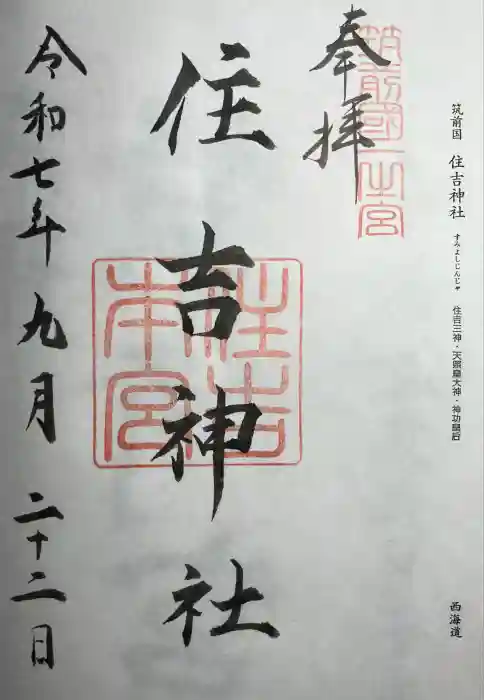 筑前国 住吉神社 すみよしじんじゃ 住吉三神・天照皇大神・神功皇后 西海道
奉拝
筑前國一之宮
住吉神社
住吉
本宮
令和七年九月二十二日